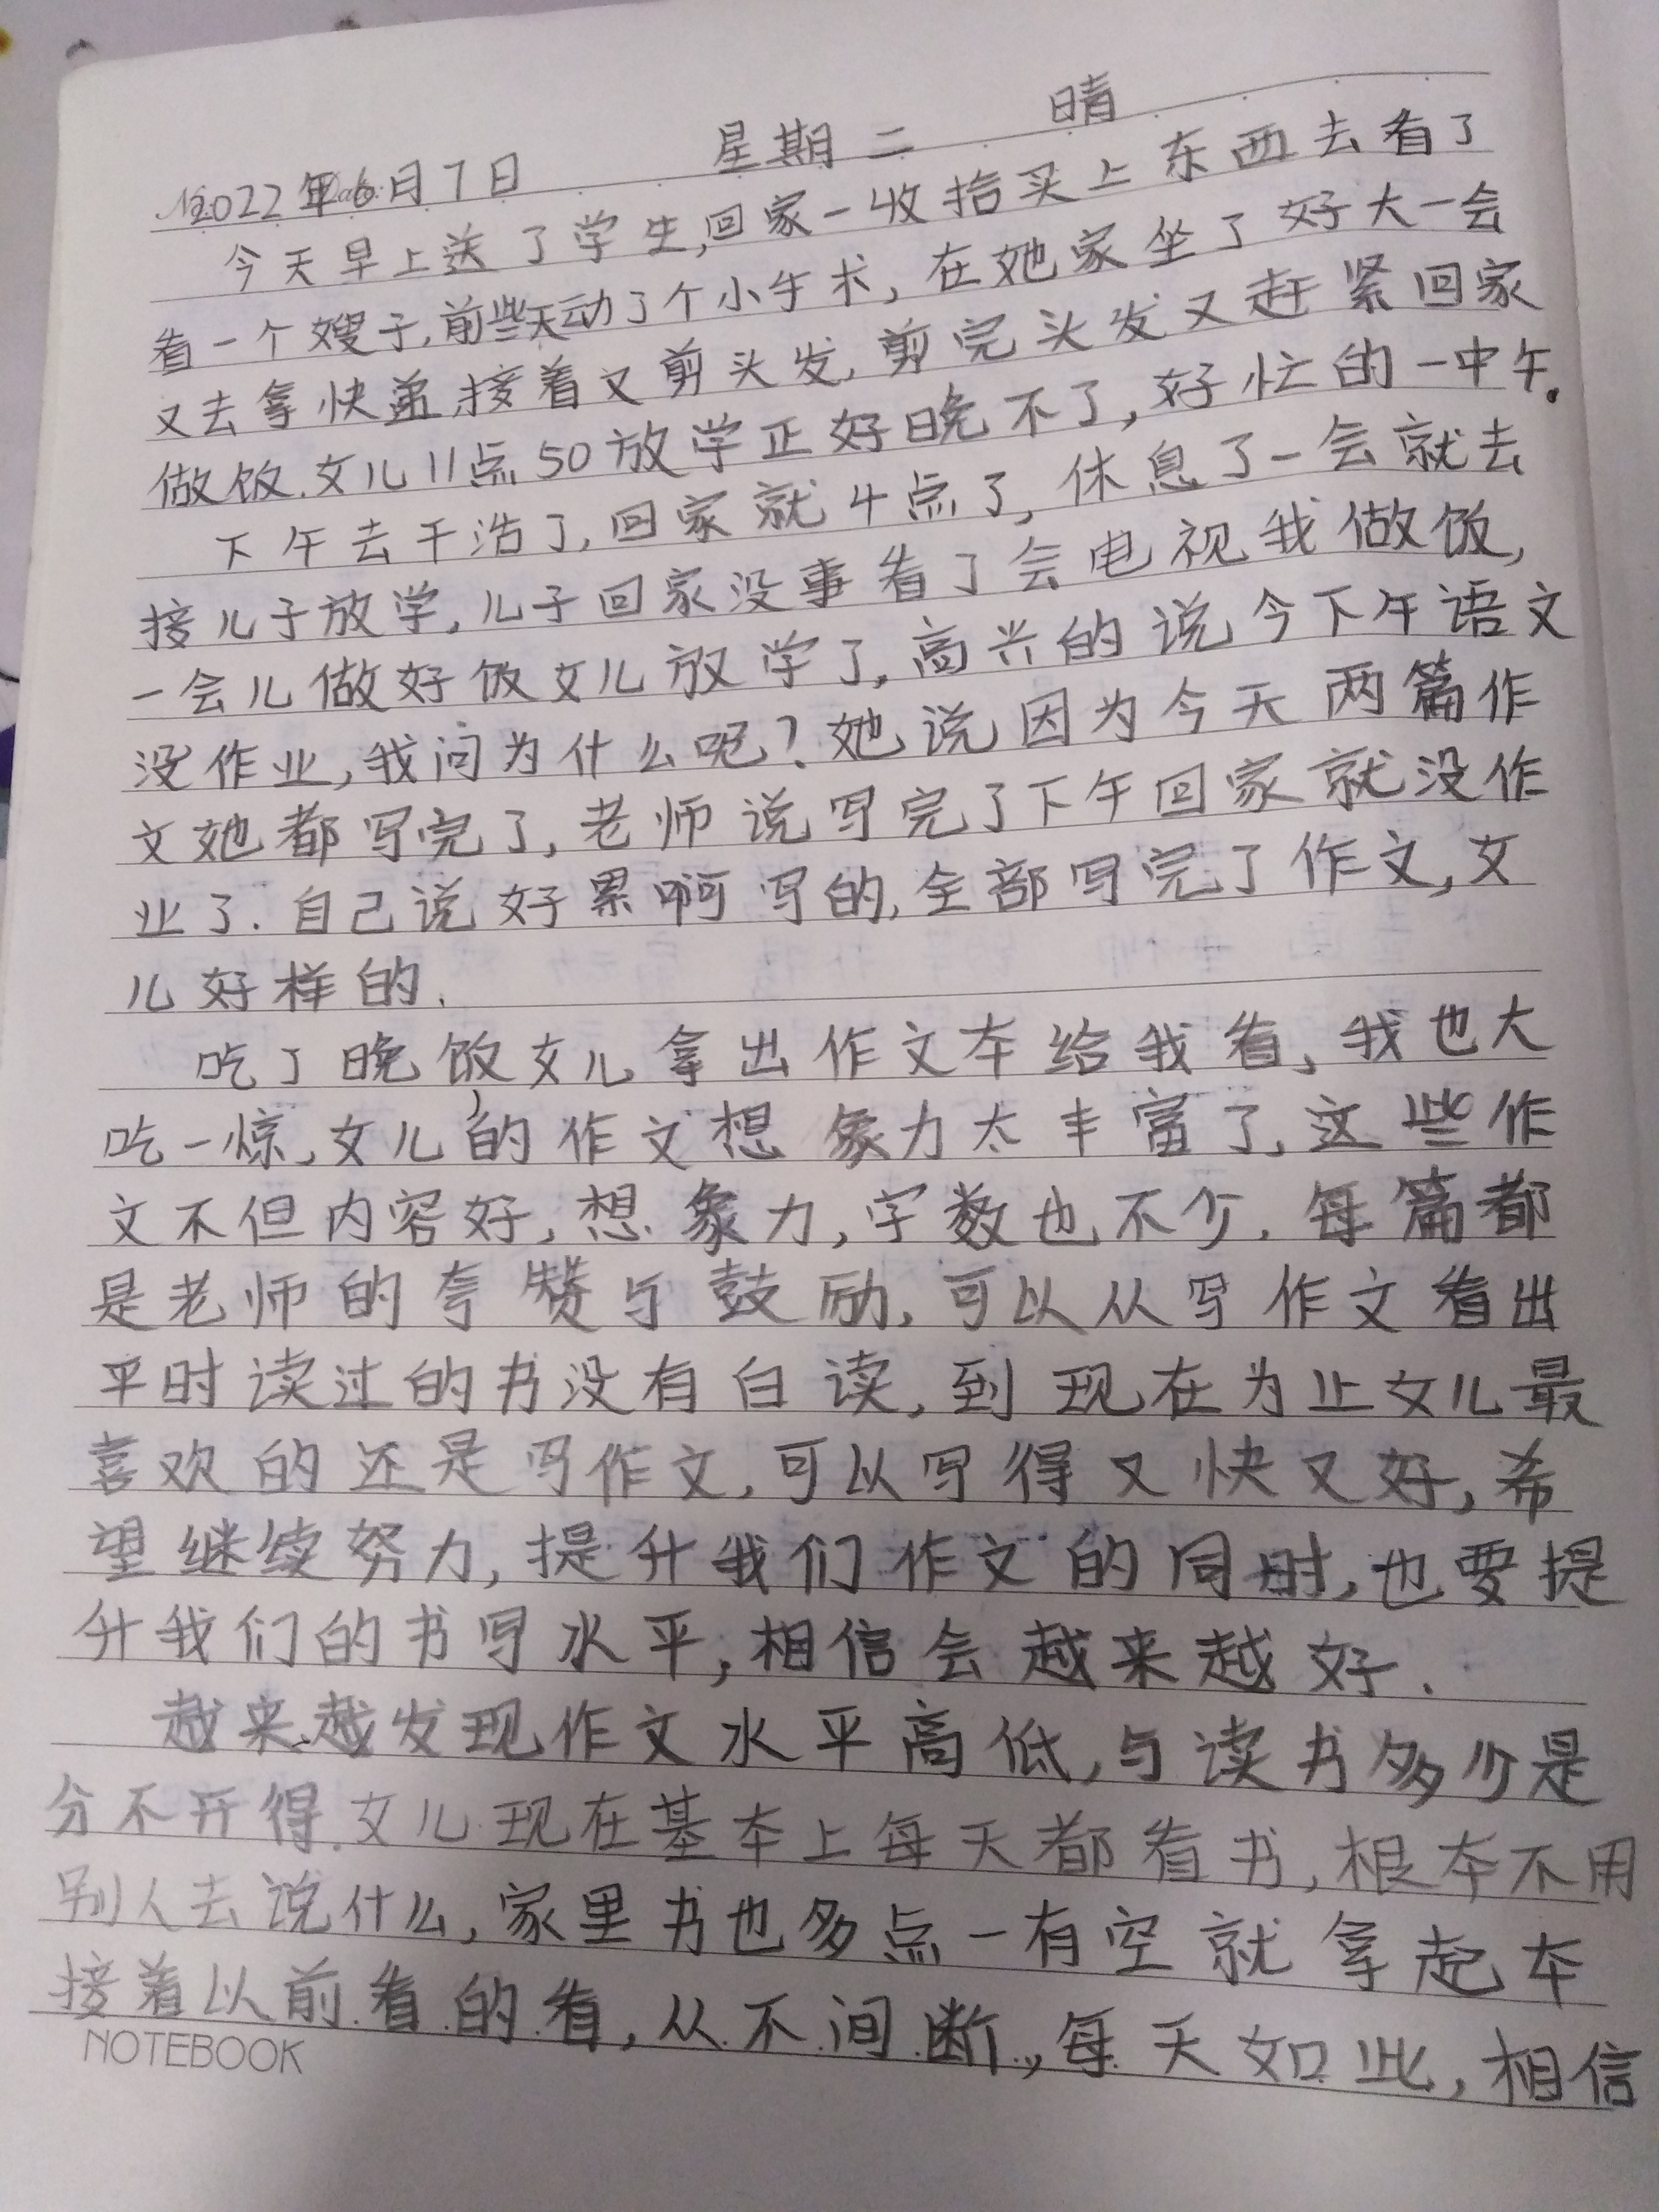 2022年6月7日 星期二 晴
今天早上送了学生,回家一收拾买上东西去看了
看一个嫂子,前些天动了个小手术,在她家坐了好大一会
又去拿快递,接着又剪头发,剪完头发又赶紧回家
做饭.女儿11点50放学正好晚不了,好忙的一中午.
下午去干活了,回家就4点了,休息了一会就去
接儿子放学,儿子回家没事看了会电视我做饭,
一会儿做好饭女儿放学了,高兴的说今下午语文
没作业,我问为什么呢?她说因为今天两篇作
文她都写完了,老师说写完了下午回家就没作
业了.自己说好累啊写的,全部写完了作文,女
儿好样的.
吃了晚饭,女儿拿出作文本给我看,我也大
吃一惊,女儿的作文想象力太丰富了,这些作
文不但内容好,想象力,字数也不少.每篇都
是老师的夸赞与鼓励,可以从写作文看出
平时读过的书没有白读,到现在为止女儿最
喜欢的还是写作文,可以写得又快又好,希
望继续努力,提升我们作文的同时,也要提
升我们的书写水平,相信会越来越好.
越来越发现作文水平高低,与读书多少是
分不开得.女儿现在基本上每天都看书,根本不用
别人去说什么,家里书也多点一有空就拿起本
接着以前看的看,从不间断,每天如此,相信
NOTEBOOK